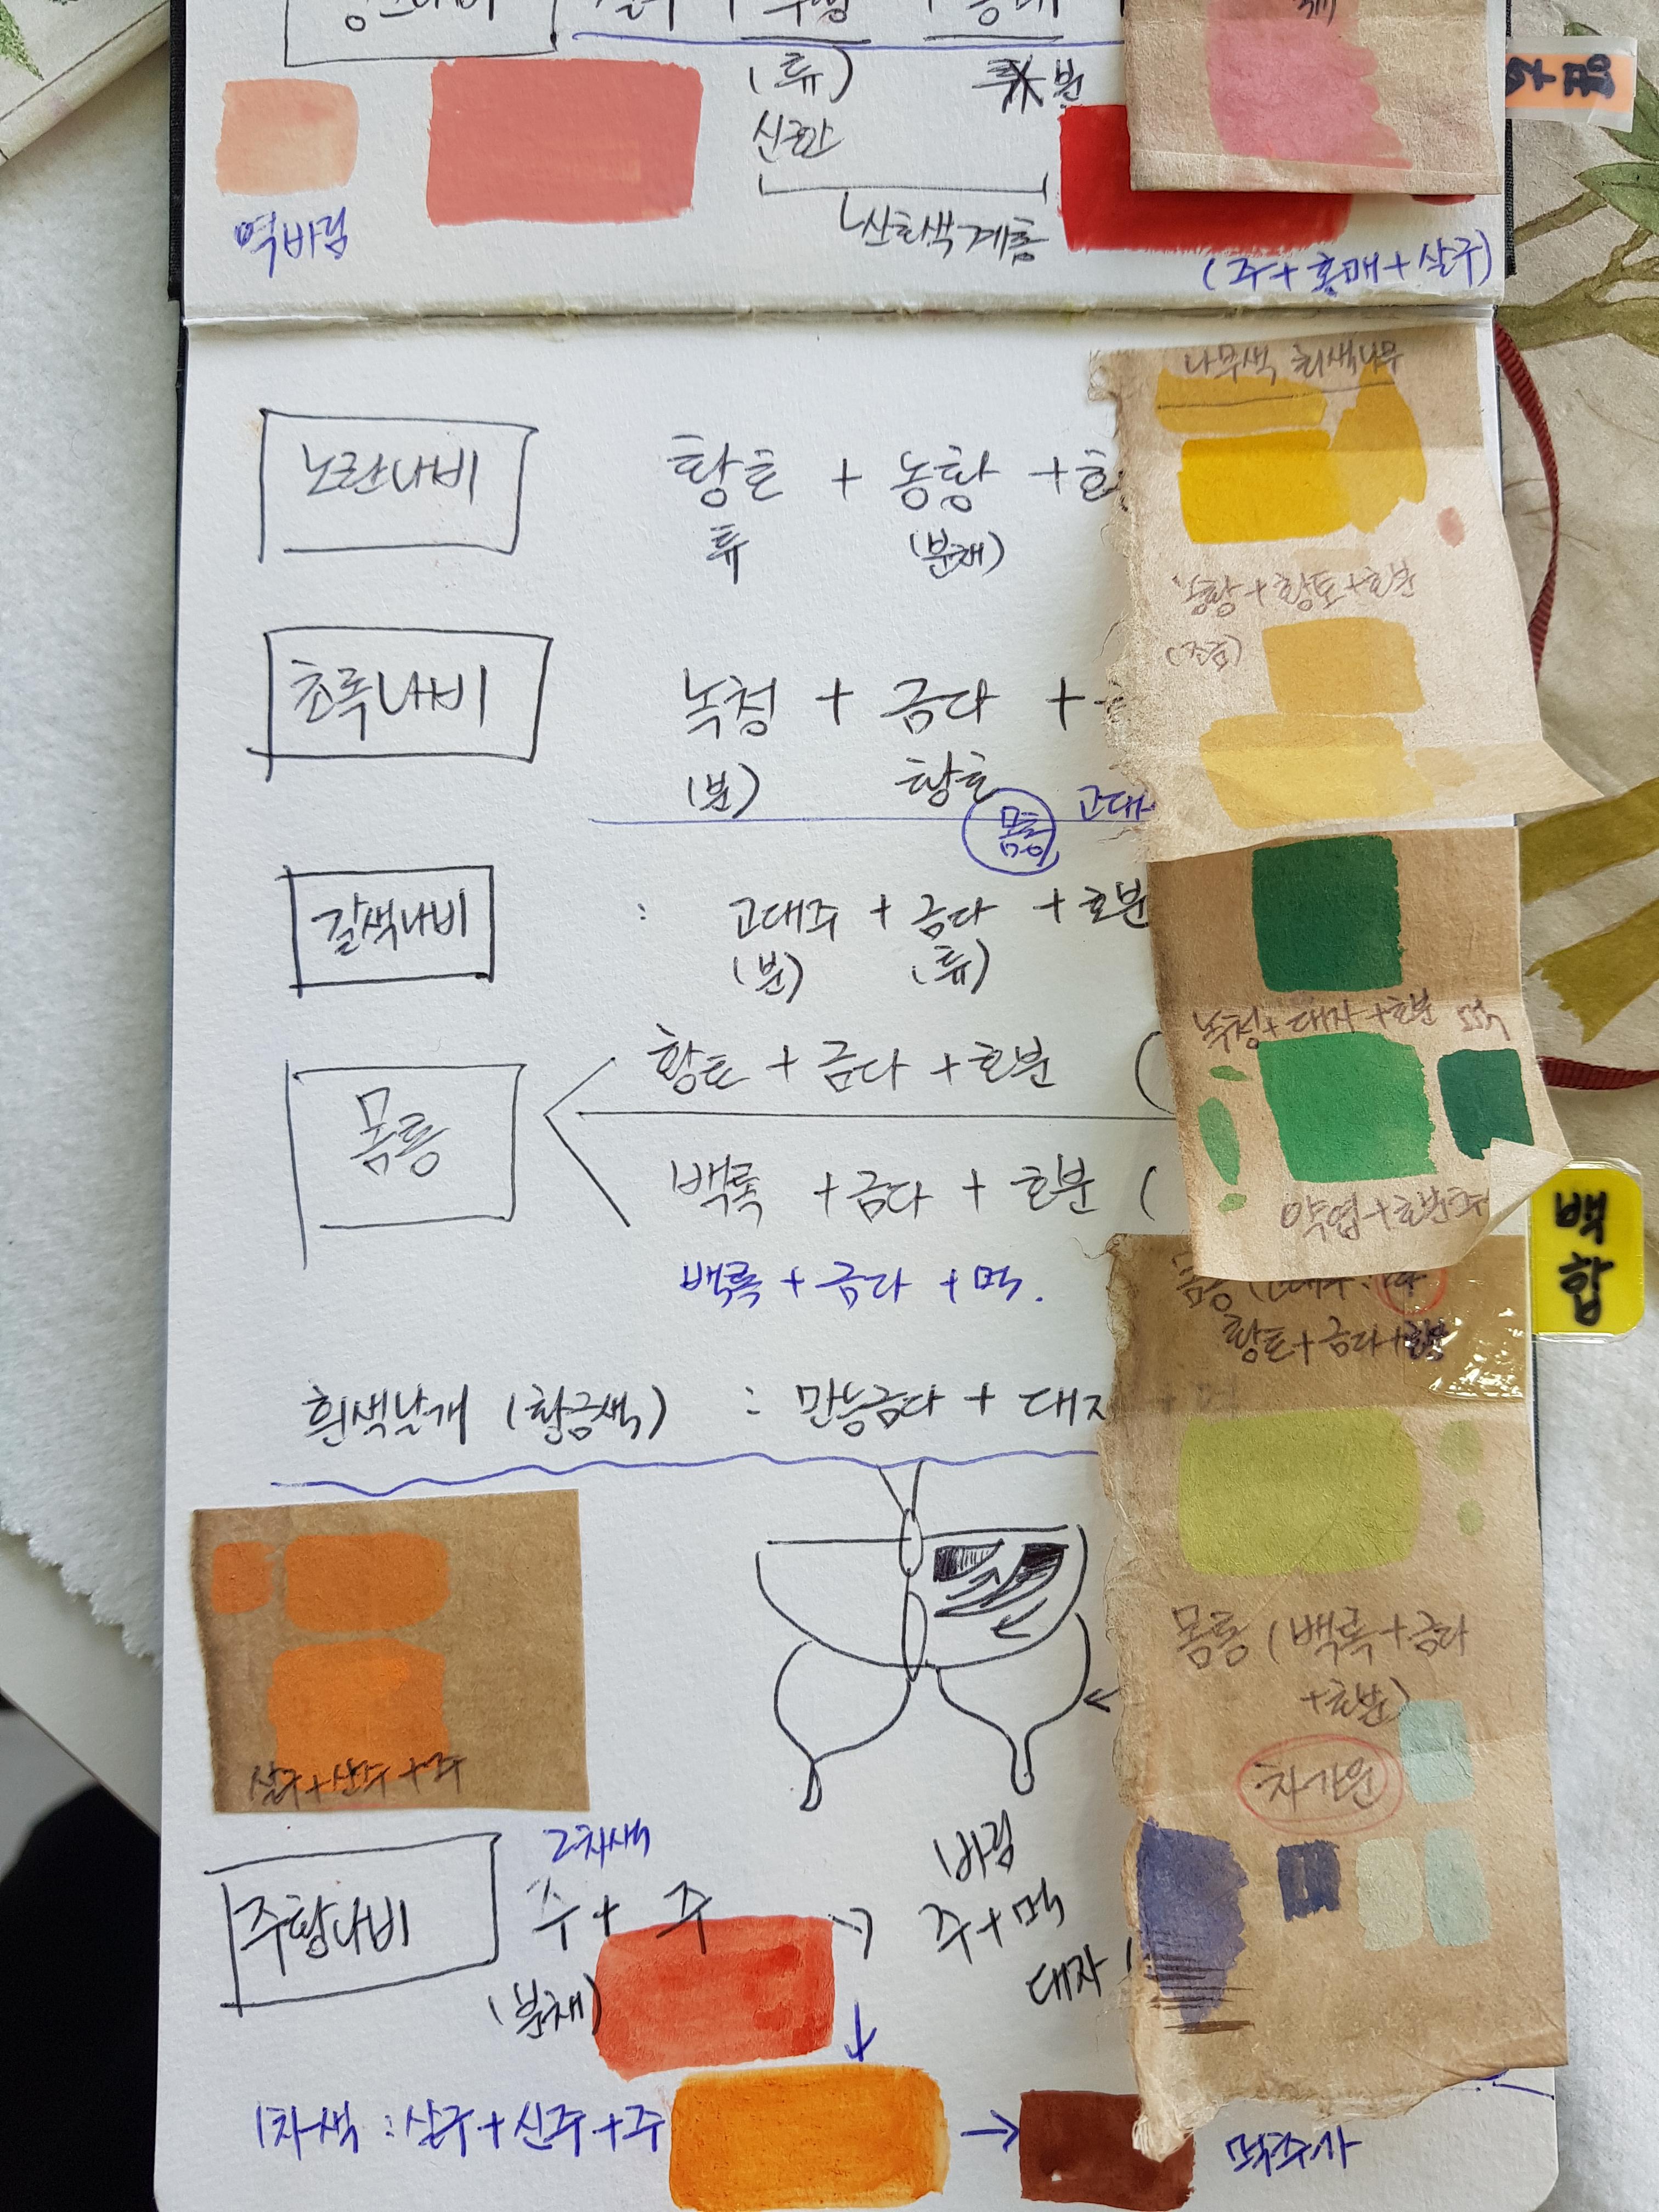 (튜)
분
신주
역바림
산호색계통
(주+홍매+살구)
나무색 회색나무
노란나비
황토 + 농황 +호
튜
(분채)
농황+황토+호분
초록나비
녹청 + 금다 +
(분)
황토
몸통
고대
갈색나비
: 고대주 + 금다 +호분
(분)
(튜)
녹청+대자+호분
먹
몸통
황토 + 금다 +호분 (
백록 +금다 + 호분 (
약엽+호분
백록 + 금다 +먹.
백합
황토+금다+호분
흰색날개 (황금색) : 만능금다 + 대자 + 먹
몸통 (백록+금다
+호분)
차가운
살구+산주+주
주황나비
2차색
주+ 주
(분채)
바림
주+먹
대자
1차색 : 살구+신주+주
먹주사